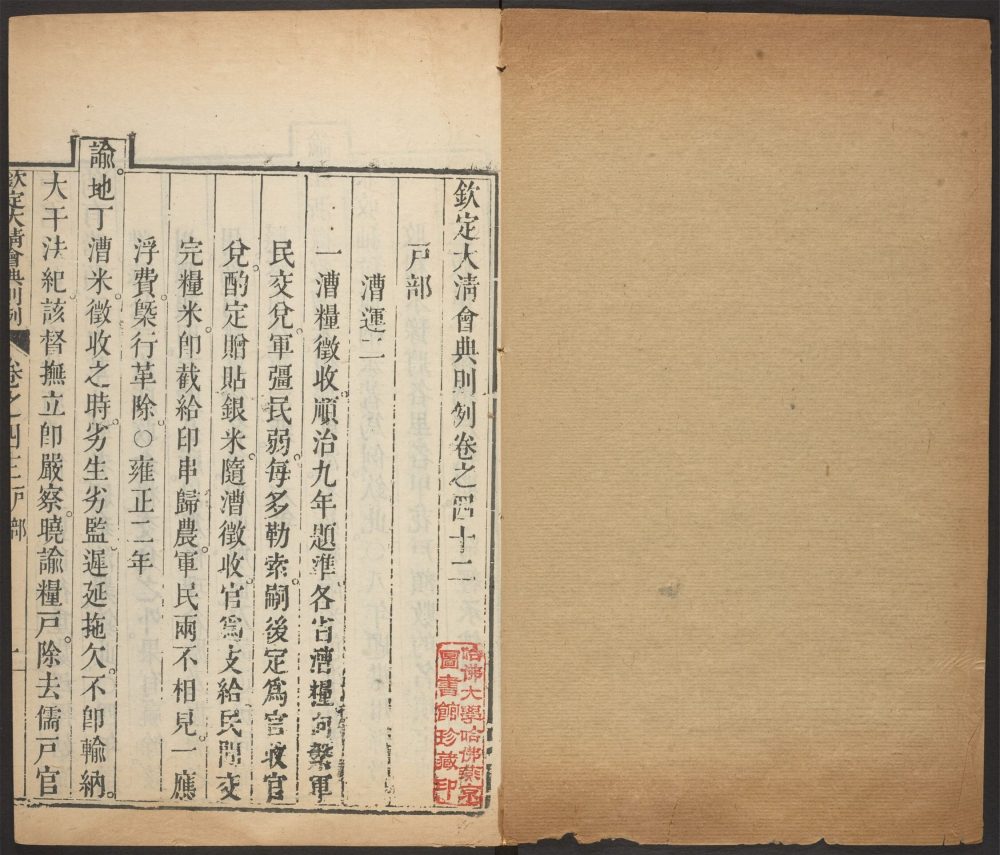 欽定大清會典則例卷之四十二
戶部
漕運二
一漕糧徵收順治九年題準各省漕糧向係軍
民交兌軍彊民弱每多勒索嗣後定爲官收官
兌酌定贈貼銀米隨漕徵收官爲支給民間交
完糧米卽截給印串歸農軍民兩不相見一應
浮費槩行革除○雍正二年
諭地丁漕米徵收之時劣生劣監遲延拖欠不卽輸納
大干法紀該督撫立卽嚴察曉諭糧戶除去儒戶官
欽定大清會典則例
卷之四十二戶部
一
哈佛大學哈佛燕京
圖書館珍藏印